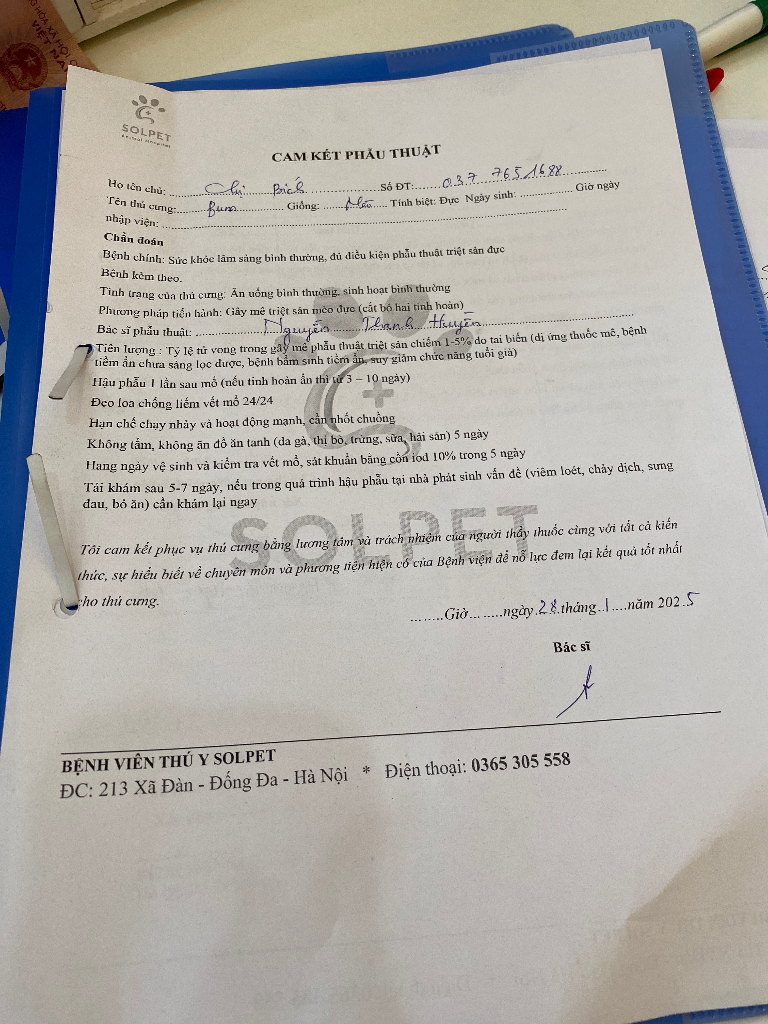 SOLPET
Animal Hospital
CAM KẾT PHẪU THUẬT
Họ tên chủ: Chị Bích Số ĐT: 037 765 1688
Tên thú cưng: Bum Giống: Mèo Tính biệt: Đực Ngày sinh: Giờ ngày
nhập viện:
Chẩn đoán
Bệnh chính: Sức khỏe lâm sàng bình thường, đủ điều kiện phẫu thuật triệt sản đực
Bệnh kèm theo.
Tình trạng của thú cưng: Ăn uống bình thường, sinh hoạt bình thường
Phương pháp tiến hành: Gây mê triệt sản mèo đực (cắt bỏ hai tinh hoàn)
Bác sĩ phẫu thuật: Nguyễn Thanh Huyền
Tiên lượng : Tỷ lệ tử vong trong gây mê phẫu thuật triệt sản chiếm 1-5% do tai biến (dị ứng thuốc mê, bệnh
tiềm ẩn chưa sàng lọc được, bệnh bẩm sinh tiềm ẩn, suy giảm chức năng tuổi già)
Hậu phẫu 1 lần sau mổ (nếu tinh hoàn ẩn thì từ 3 – 10 ngày)
Đeo loa chống liếm vết mổ 24/24
Hạn chế chạy nhảy và hoạt động mạnh, cần nhốt chuồng
Không tắm, không ăn đồ ăn tanh (da gà, thị bò, trứng, sữa, hải sản) 5 ngày
Hang ngày vệ sinh và kiểm tra vết mổ, sát khuẩn bằng cồn iod 10% trong 5 ngày
Tái khám sau 5-7 ngày, nếu trong quá trình hậu phẫu tại nhà phát sinh vấn đề (viêm loét, chảy dịch, sưng
đau, bỏ ăn) cần khám lại ngay
SOLPET
Tôi cam kết phục vụ thú cưng bằng lương tâm và trách nhiệm của người thầy thuốc cùng với tất cả kiến
thức, sự hiểu biết về chuyên môn và phương tiện hiện có của Bệnh viện để nỗ lực đem lại kết quả tốt nhất
cho thú cưng.
........Giờ........ngày.28.tháng.1....năm 2025
Bác sĩ
BỆNH VIÊN THÚ Y SOLPET
ĐC: 213 Xã Đàn - Đống Đa - Hà Nội * Điện thoại: 0365 305 558